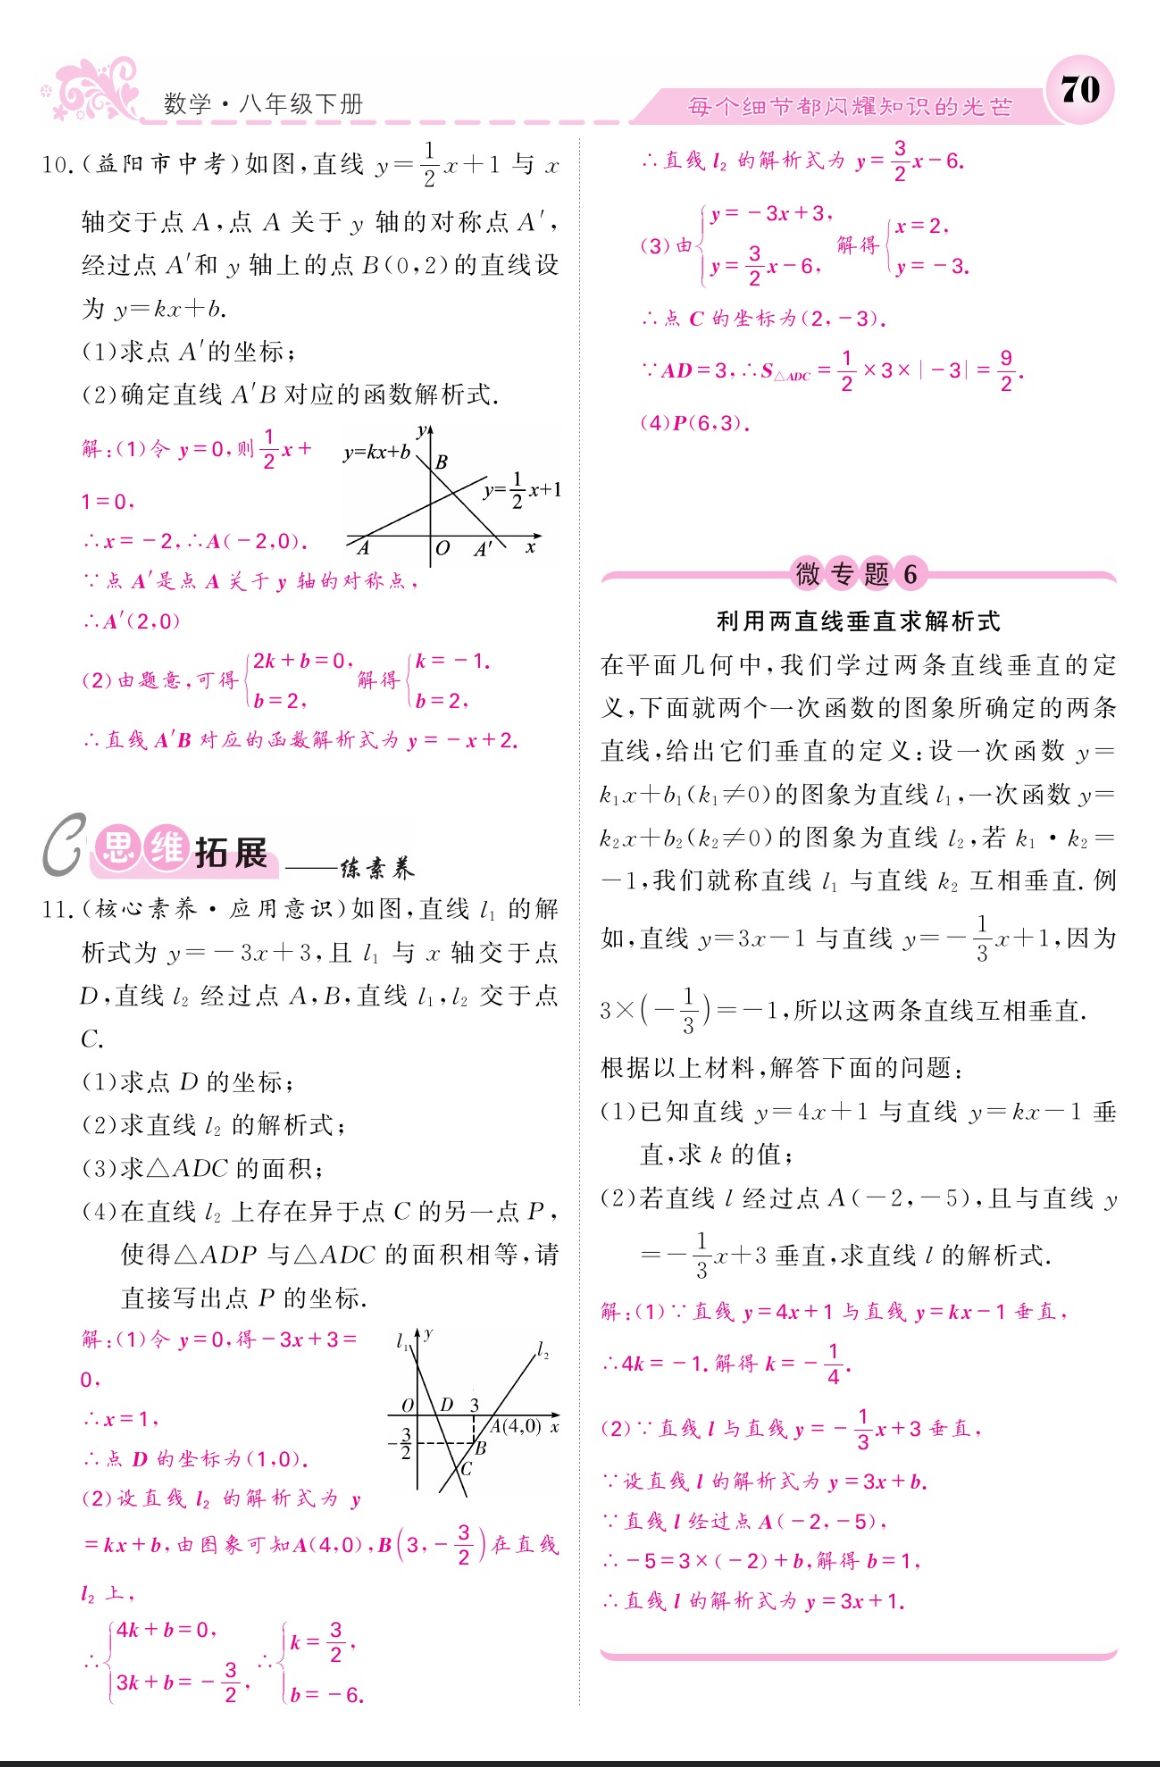 数学·八年级下册
每个细节都闪耀知识的光芒
70
10.(益阳市中考)如图,直线 y=1/2x+1 与 x
轴交于点 A,点 A 关于 y 轴的对称点 A′,
经过点 A′和 y 轴上的点 B(0,2)的直线设
为 y=kx+b.
(1)求点 A′的坐标;
(2)确定直线 A′B 对应的函数解析式.
解:(1)令 y=0,则1/2x+
1=0,
∴x=-2,∴A(-2,0).
∵点 A′是点 A 关于 y 轴的对称点,
∴A′(2,0)
y=kx+b
y
B
y=1/2x+1
A
O
A′
x
(2)由题意,可得{2k+b=0, b=2, 解得{k=-1. b=2,
∴直线 A′B 对应的函数解析式为 y=-x+2.
C 思维拓展 ——练素养
11.(核心素养·应用意识)如图,直线 l₁ 的解
析式为 y=-3x+3,且 l₁ 与 x 轴交于点
D,直线 l₂ 经过点 A,B,直线 l₁,l₂ 交于点
C.
(1)求点 D 的坐标;
(2)求直线 l₂ 的解析式;
(3)求△ADC 的面积;
(4)在直线 l₂ 上存在异于点 C 的另一点 P,
使得△ADP 与△ADC 的面积相等,请
直接写出点 P 的坐标.
解:(1)令 y=0,得-3x+3=
0,
∴x=1,
∴点 D 的坐标为(1,0).
(2)设直线 l₂ 的解析式为 y
l₁
y
l₂
O
D
3
A(4,0)
x
-3/2
B
C
=kx+b,由图象可知A(4,0),B(3,-3/2)在直线
l₂ 上,
∴{4k+b=0, 3k+b=-3/2, ∴{k=3/2, b=-6.
∴直线 l₂ 的解析式为 y=3/2x-6.
(3)由{y=-3x+3, y=3/2x-6, 解得{x=2, y=-3.
∴点 C 的坐标为(2,-3).
∵AD=3,∴S△ADC=1/2×3×|-3|=9/2.
(4)P(6,3).
微专题6
利用两直线垂直求解析式
在平面几何中,我们学过两条直线垂直的定
义,下面就两个一次函数的图象所确定的两条
直线,给出它们垂直的定义:设一次函数 y=
k₁x+b₁(k₁≠0)的图象为直线 l₁,一次函数 y=
k₂x+b₂(k₂≠0)的图象为直线 l₂,若 k₁·k₂=
-1,我们就称直线 l₁ 与直线 k₂ 互相垂直.例
如,直线 y=3x-1 与直线 y=-1/3x+1,因为
3×(-1/3)=-1,所以这两条直线互相垂直.
根据以上材料,解答下面的问题:
(1)已知直线 y=4x+1 与直线 y=kx-1 垂
直,求 k 的值;
(2)若直线 l 经过点 A(-2,-5),且与直线 y
=-1/3x+3 垂直,求直线 l 的解析式.
解:(1)∵直线 y=4x+1 与直线 y=kx-1 垂直,
∴4k=-1.解得 k=-1/4.
(2)∵直线 l 与直线 y=-1/3x+3 垂直,
∵设直线 l 的解析式为 y=3x+b.
∵直线 l 经过点 A(-2,-5),
∴-5=3×(-2)+b,解得 b=1,
∴直线 l 的解析式为 y=3x+1.